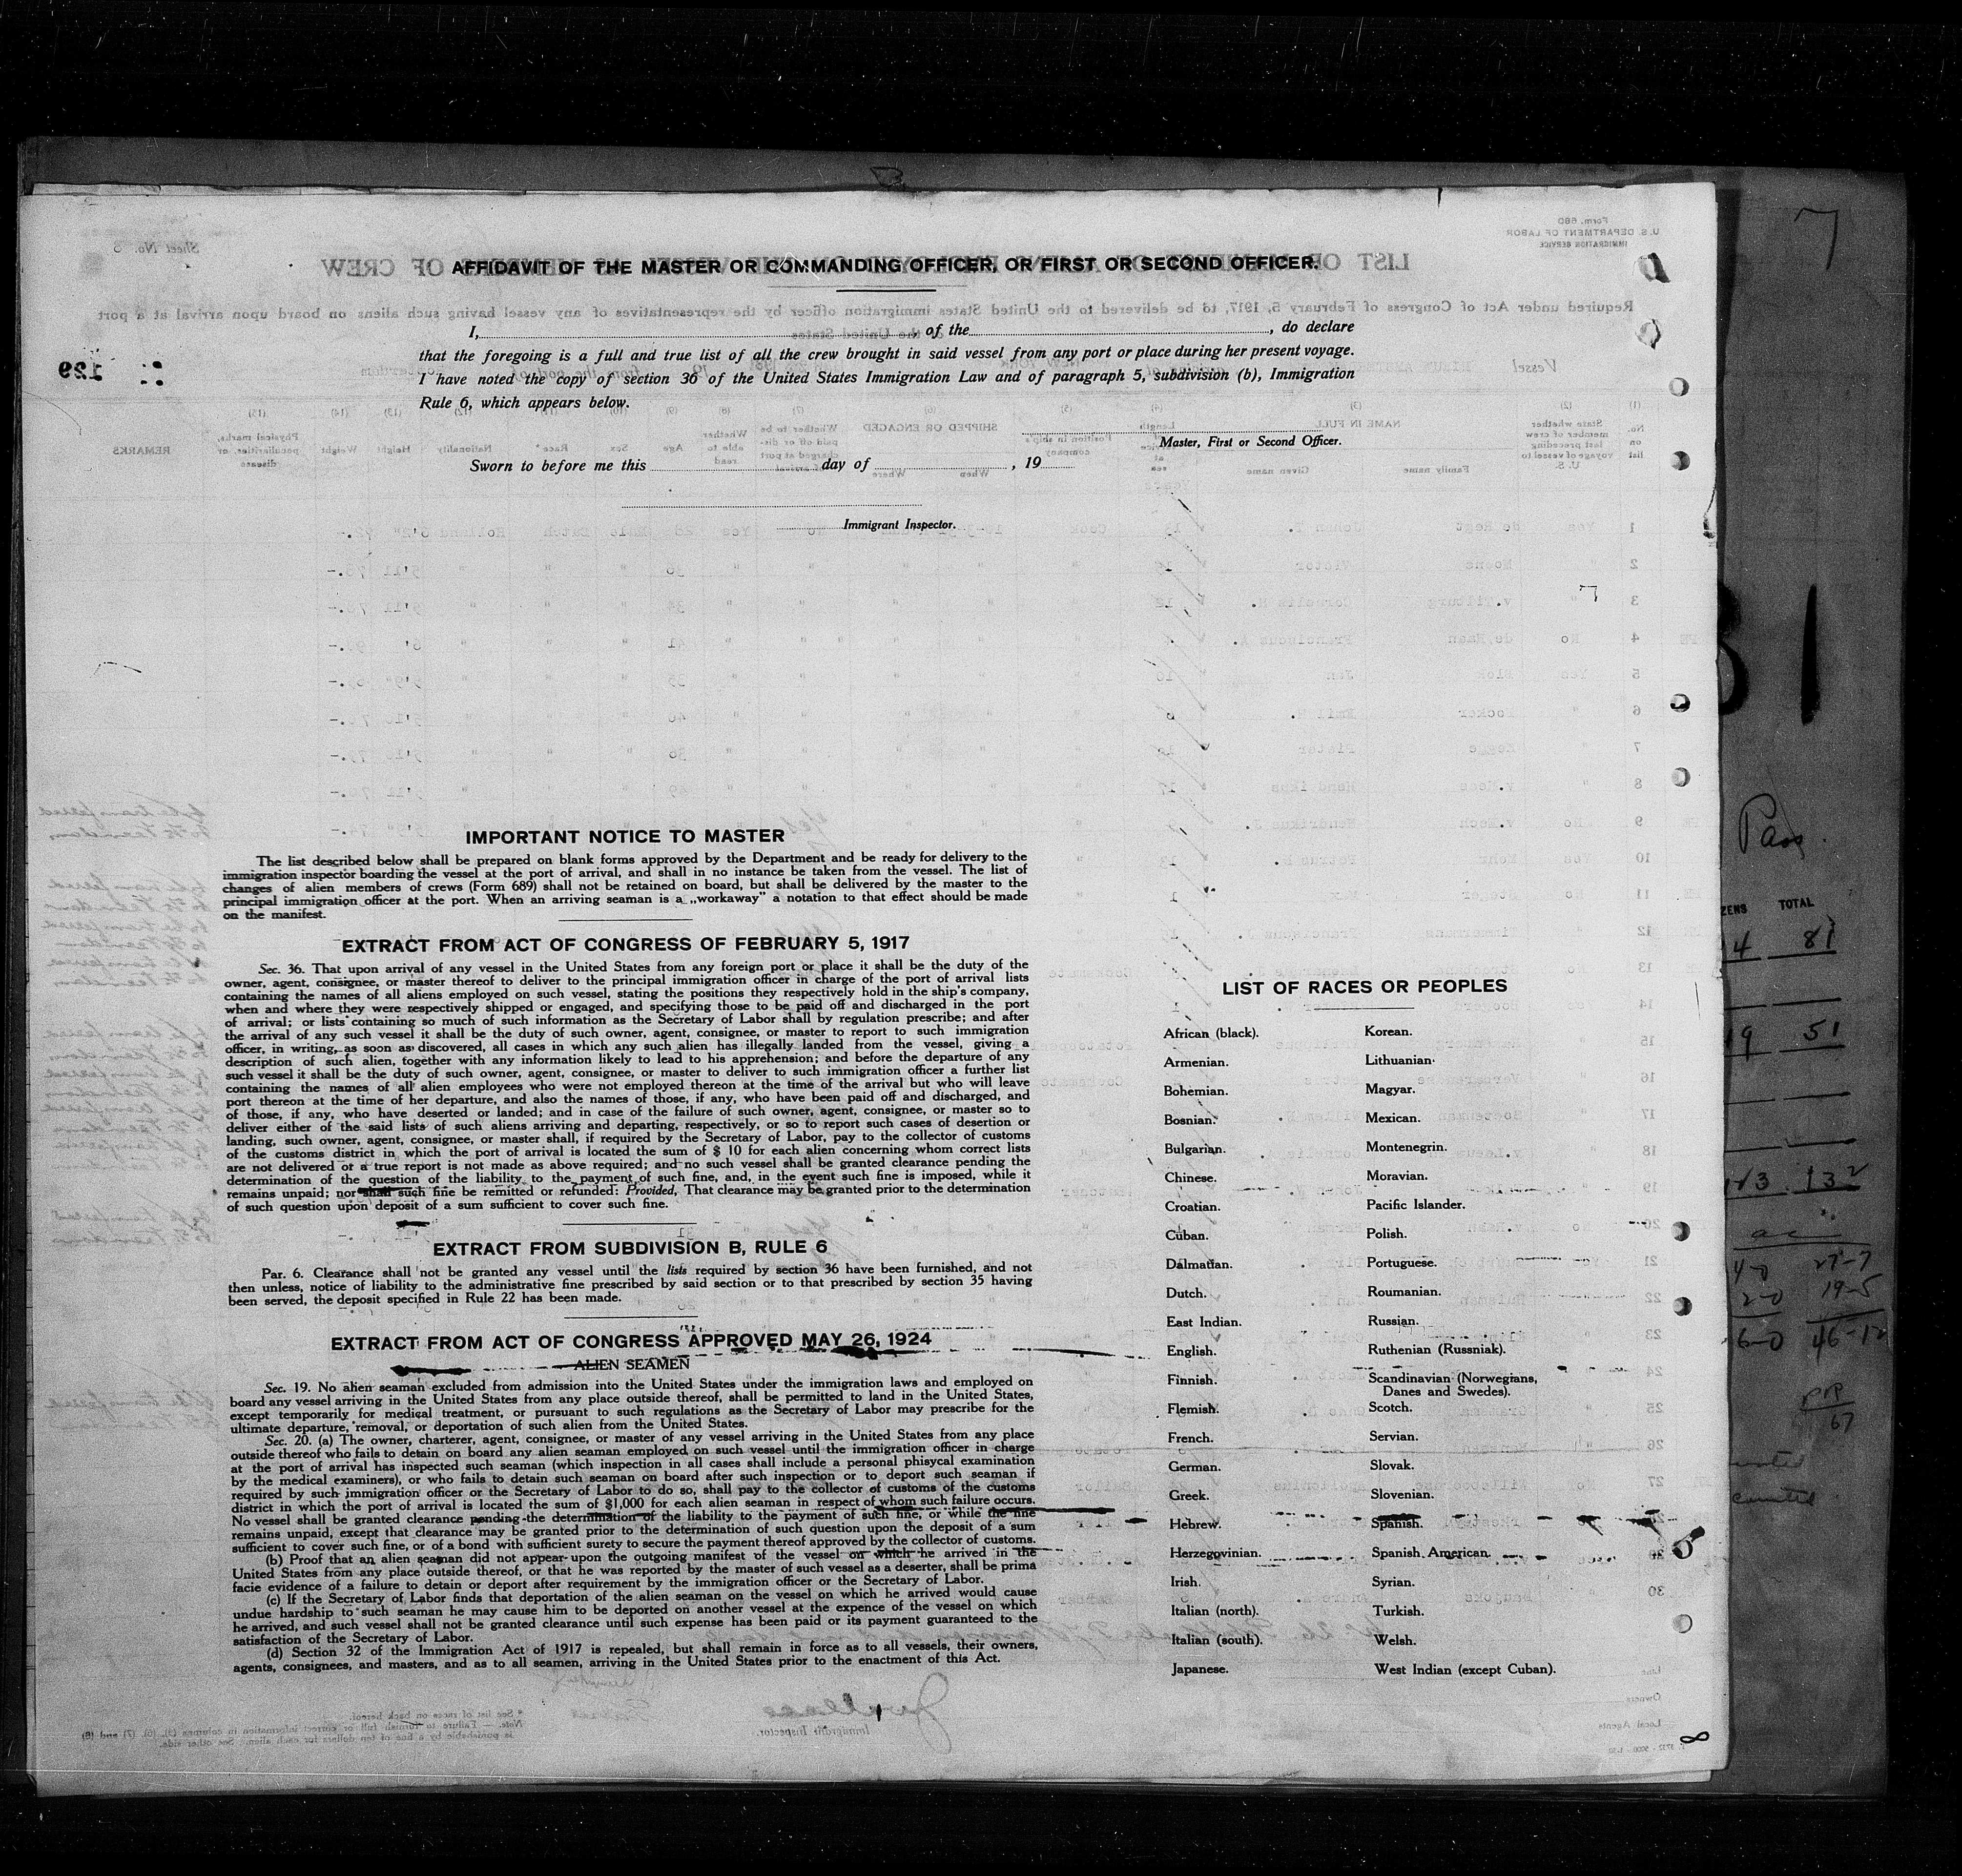 AFFIDAVIT OF THE MASTER OR COMMANDING OFFICER, OR FIRST OR SECOND OFFICER.
I, , of the , do declare
that the foregoing is a full and true list of all the crew brought in said vessel from any port or place during her present voyage.
I have noted the copy of section 36 of the United States Immigration Law and of paragraph 5, subdivision (b), Immigration
Rule 6, which appears below.
Master, First or Second Officer.
Sworn to before me this day of , 19
Immigrant Inspector.
IMPORTANT NOTICE TO MASTER
The list described below shall be prepared on blank forms approved by the Department and be ready for delivery to the
immigration inspector boarding the vessel at the port of arrival, and shall in no instance be taken from the vessel. The list of
changes of alien members of crews (Form 689) shall not be retained on board, but shall be delivered by the master to the
principal immigration officer at the port. When an arriving seaman is a „workaway" a notation to that effect should be made
on the manifest.
EXTRACT FROM ACT OF CONGRESS OF FEBRUARY 5, 1917
Sec. 36. That upon arrival of any vessel in the United States from any foreign port or place it shall be the duty of the
owner, agent, consignee, or master thereof to deliver to the principal immigration officer in charge of the port of arrival lists
containing the names of all aliens employed on such vessel, stating the positions they respectively hold in the ship's company,
when and where they were respectively shipped or engaged, and specifying those to be paid off and discharged in the port
of arrival; or lists containing so much of such information as the Secretary of Labor shall by regulation prescribe; and after
the arrival of any such vessel it shall be the duty of such owner, agent, consignee, or master to report to such immigration
officer, in writing, as soon as discovered, all cases in which any such alien has illegally landed from the vessel, giving a
description of such alien, together with any information likely to lead to his apprehension; and before the departure of any
such vessel it shall be the duty of such owner, agent, consignee, or master to deliver to such immigration officer a further list
containing the names of all alien employees who were not employed thereon at the time of the arrival but who will leave
port thereon at the time of her departure, and also the names of those, if any, who have been paid off and discharged, and
of those, if any, who have deserted or landed; and in case of the failure of such owner, agent, consignee, or master so to
deliver either of the said lists of such aliens arriving and departing, respectively, or so to report such cases of desertion or
landing, such owner, agent, consignee, or master shall, if required by the Secretary of Labor, pay to the collector of customs
of the customs district in which the port of arrival is located the sum of $ 10 for each alien concerning whom correct lists
are not delivered or a true report is not made as above required; and no such vessel shall be granted clearance pending the
determination of the question of the liability to the payment of such fine, and, in the event such fine is imposed, while it
remains unpaid; nor shall such fine be remitted or refunded: Provided, That clearance may be granted prior to the determination
of such question upon deposit of a sum sufficient to cover such fine.
EXTRACT FROM SUBDIVISION B, RULE 6
Par. 6. Clearance shall not be granted any vessel until the lists required by section 36 have been furnished, and not
then unless, notice of liability to the administrative fine prescribed by said section or to that prescribed by section 35 having
been served, the deposit specified in Rule 22 has been made.
EXTRACT FROM ACT OF CONGRESS APPROVED MAY 26, 1924
ALIEN SEAMEN
Sec. 19. No alien seaman excluded from admission into the United States under the immigration laws and employed on
board any vessel arriving in the United States from any place outside thereof, shall be permitted to land in the United States,
except temporarily for medical treatment, or pursuant to such regulations as the Secretary of Labor may prescribe for the
ultimate departure, removal, or deportation of such alien from the United States.
Sec. 20. (a) The owner, charterer, agent, consignee, or master of any vessel arriving in the United States from any place
outside thereof who fails to detain on board any alien seaman employed on such vessel until the immigration officer in charge
at the port of arrival has inspected such seaman (which inspection in all cases shall include a personal phisycal examination
by the medical examiners), or who fails to detain such seaman on board after such inspection or to deport such seaman if
required by such immigration officer or the Secretary of Labor to do so, shall pay to the collector of customs of the customs
district in which the port of arrival is located the sum of $1,000 for each alien seaman in respect of whom such failure occurs.
No vessel shall be granted clearance pending the determination of the liability to the payment of such fine, or while the fine
remains unpaid, except that clearance may be granted prior to the determination of such question upon the deposit of a sum
sufficient to cover such fine, or of a bond with sufficient surety to secure the payment thereof approved by the collector of customs.
(b) Proof that an alien seaman did not appear upon the outgoing manifest of the vessel on which he arrived in the
United States from any place outside thereof, or that he was reported by the master of such vessel as a deserter, shall be prima
facie evidence of a failure to detain or deport after requirement by the immigration officer or the Secretary of Labor.
(c) If the Secretary of Labor finds that deportation of the alien seaman on the vessel on which he arrived would cause
undue hardship to such seaman he may cause him to be deported on another vessel at the expence of the vessel on which
he arrived, and such vessel shall not be granted clearance until such expense has been paid or its payment guaranteed to the
satisfaction of the Secretary of Labor.
(d) Section 32 of the Immigration Act of 1917 is repealed, but shall remain in force as to all vessels, their owners,
agents, consignees, and masters, and as to all seamen, arriving in the United States prior to the enactment of this Act.
LIST OF RACES OR PEOPLES
African (black).
Armenian.
Bohemian.
Bosnian.
Bulgarian.
Chinese.
Croatian.
Cuban.
Dalmatian.
Dutch.
East Indian.
English.
Finnish.
Flemish.
French.
German.
Greek.
Hebrew.
Herzegovinian.
Irish.
Italian (north).
Italian (south).
Japanese.
Korean.
Lithuanian.
Magyar.
Mexican.
Montenegrin.
Moravian.
Pacific Islander.
Polish.
Portuguese.
Roumanian.
Russian.
Ruthenian (Russniak).
Scandinavian (Norwegians,
Danes and Swedes).
Scotch.
Servian.
Slovak.
Slovenian.
Spanish.
Spanish American.
Syrian.
Turkish.
Welsh.
West Indian (except Cuban).
8
TOTAL
81
51
132
27-7
19-5
6-0 46-12
67